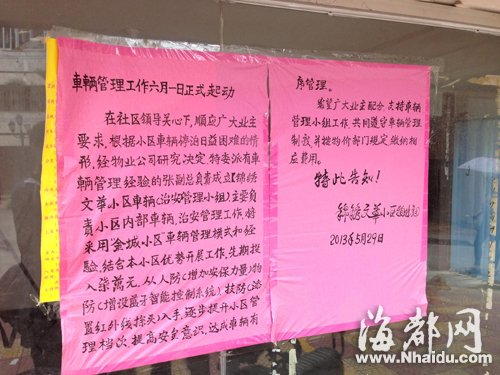 車辆管理工作六月一日正式起动
在社区领导关心下,顺应广大业主
要求,根据小区車辆停泊日益困难的情
形,经物业公司研究决定,特委派有車
辆管理经验的张副总负责成立【锦绣
文华小区車辆(治安管理小组)主要负
责小区内部車辆,治安管理工作,将
采用"金城小区"車辆管理模式和经
验,结合本小区优势开展工作,先期投
入柒萬元,从人防(增加安保力量)物
防(增设蓝牙智能控制系统),技防(添
置红外线探头)入手,逐步提升小区管
理档次,提高安全意识,达成車辆有
序管理。
希望广大业主配合,支持車辆
管理小组工作,共同遵守車辆管理
制教,并按物价部门规定,缴纳相
应费用。
特此告知!
锦绣文华小区
2013年5月29日
海都网
www.Nhaidu.com